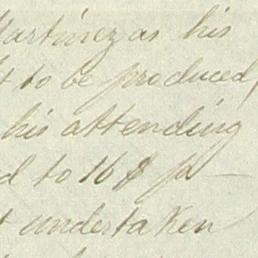 Martinez as his
t to be produced,
his attending
d to 16 $ p
t undertaken